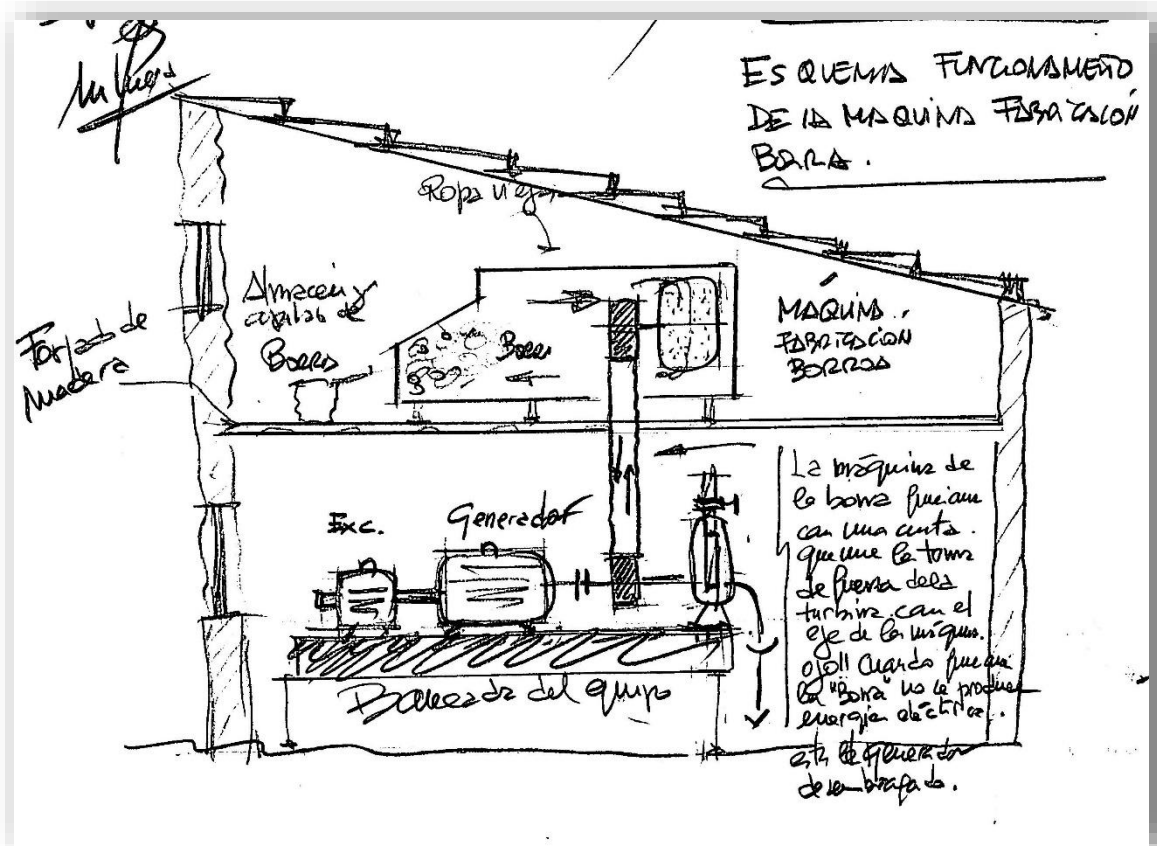 ESQUEMA FUNCIONAMIENTO
DE LA MAQUINA FABRICACIÓN
BORRA.
Ropa vieja
Almacen y
de
BORRA
Forjado de
Madera
Borra
MÁQUINA
FABRICACION
BORROA
Exc.
Generador
Bancada del equipo
La máquina de
la borra funciona
con una cinta.
que une la toma
de fuerza de la
turbina con el
eje de la máquina.
ojo!! Cuando funciona
la "Borra" no se produce
energía eléctrica.
está el generador
desembragado.